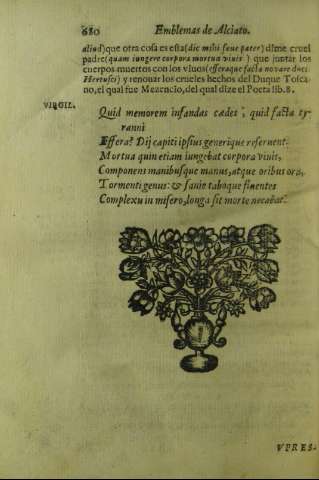 680 Emblemas de Alciato.
aliud) que otra cosa es esta (dic mihi seue pater) dime cruel
padre (quam iungere corpora mortua viuis) que juntar los
cuerpos muertos con los viuos (efferaque facta nouare Ducis
Hetrusci) y renouar los crueles hechos del Duque Tosca-
no, el qual fue Mezencio, del qual dize el Poeta lib.8.
VIRGIL. Quid memorem infandas cædes, quid facta ty-
ranni
Effera? Dij capiti ipsius generique reseruent:
Mortua quin etiam iungebat corpora viuis,
Componens manibusque manus, atque oribus ora,
Tormenti genus: & sanie taboque fluentes
Complexu in misero, longa sic morte necabat.
VPRES-